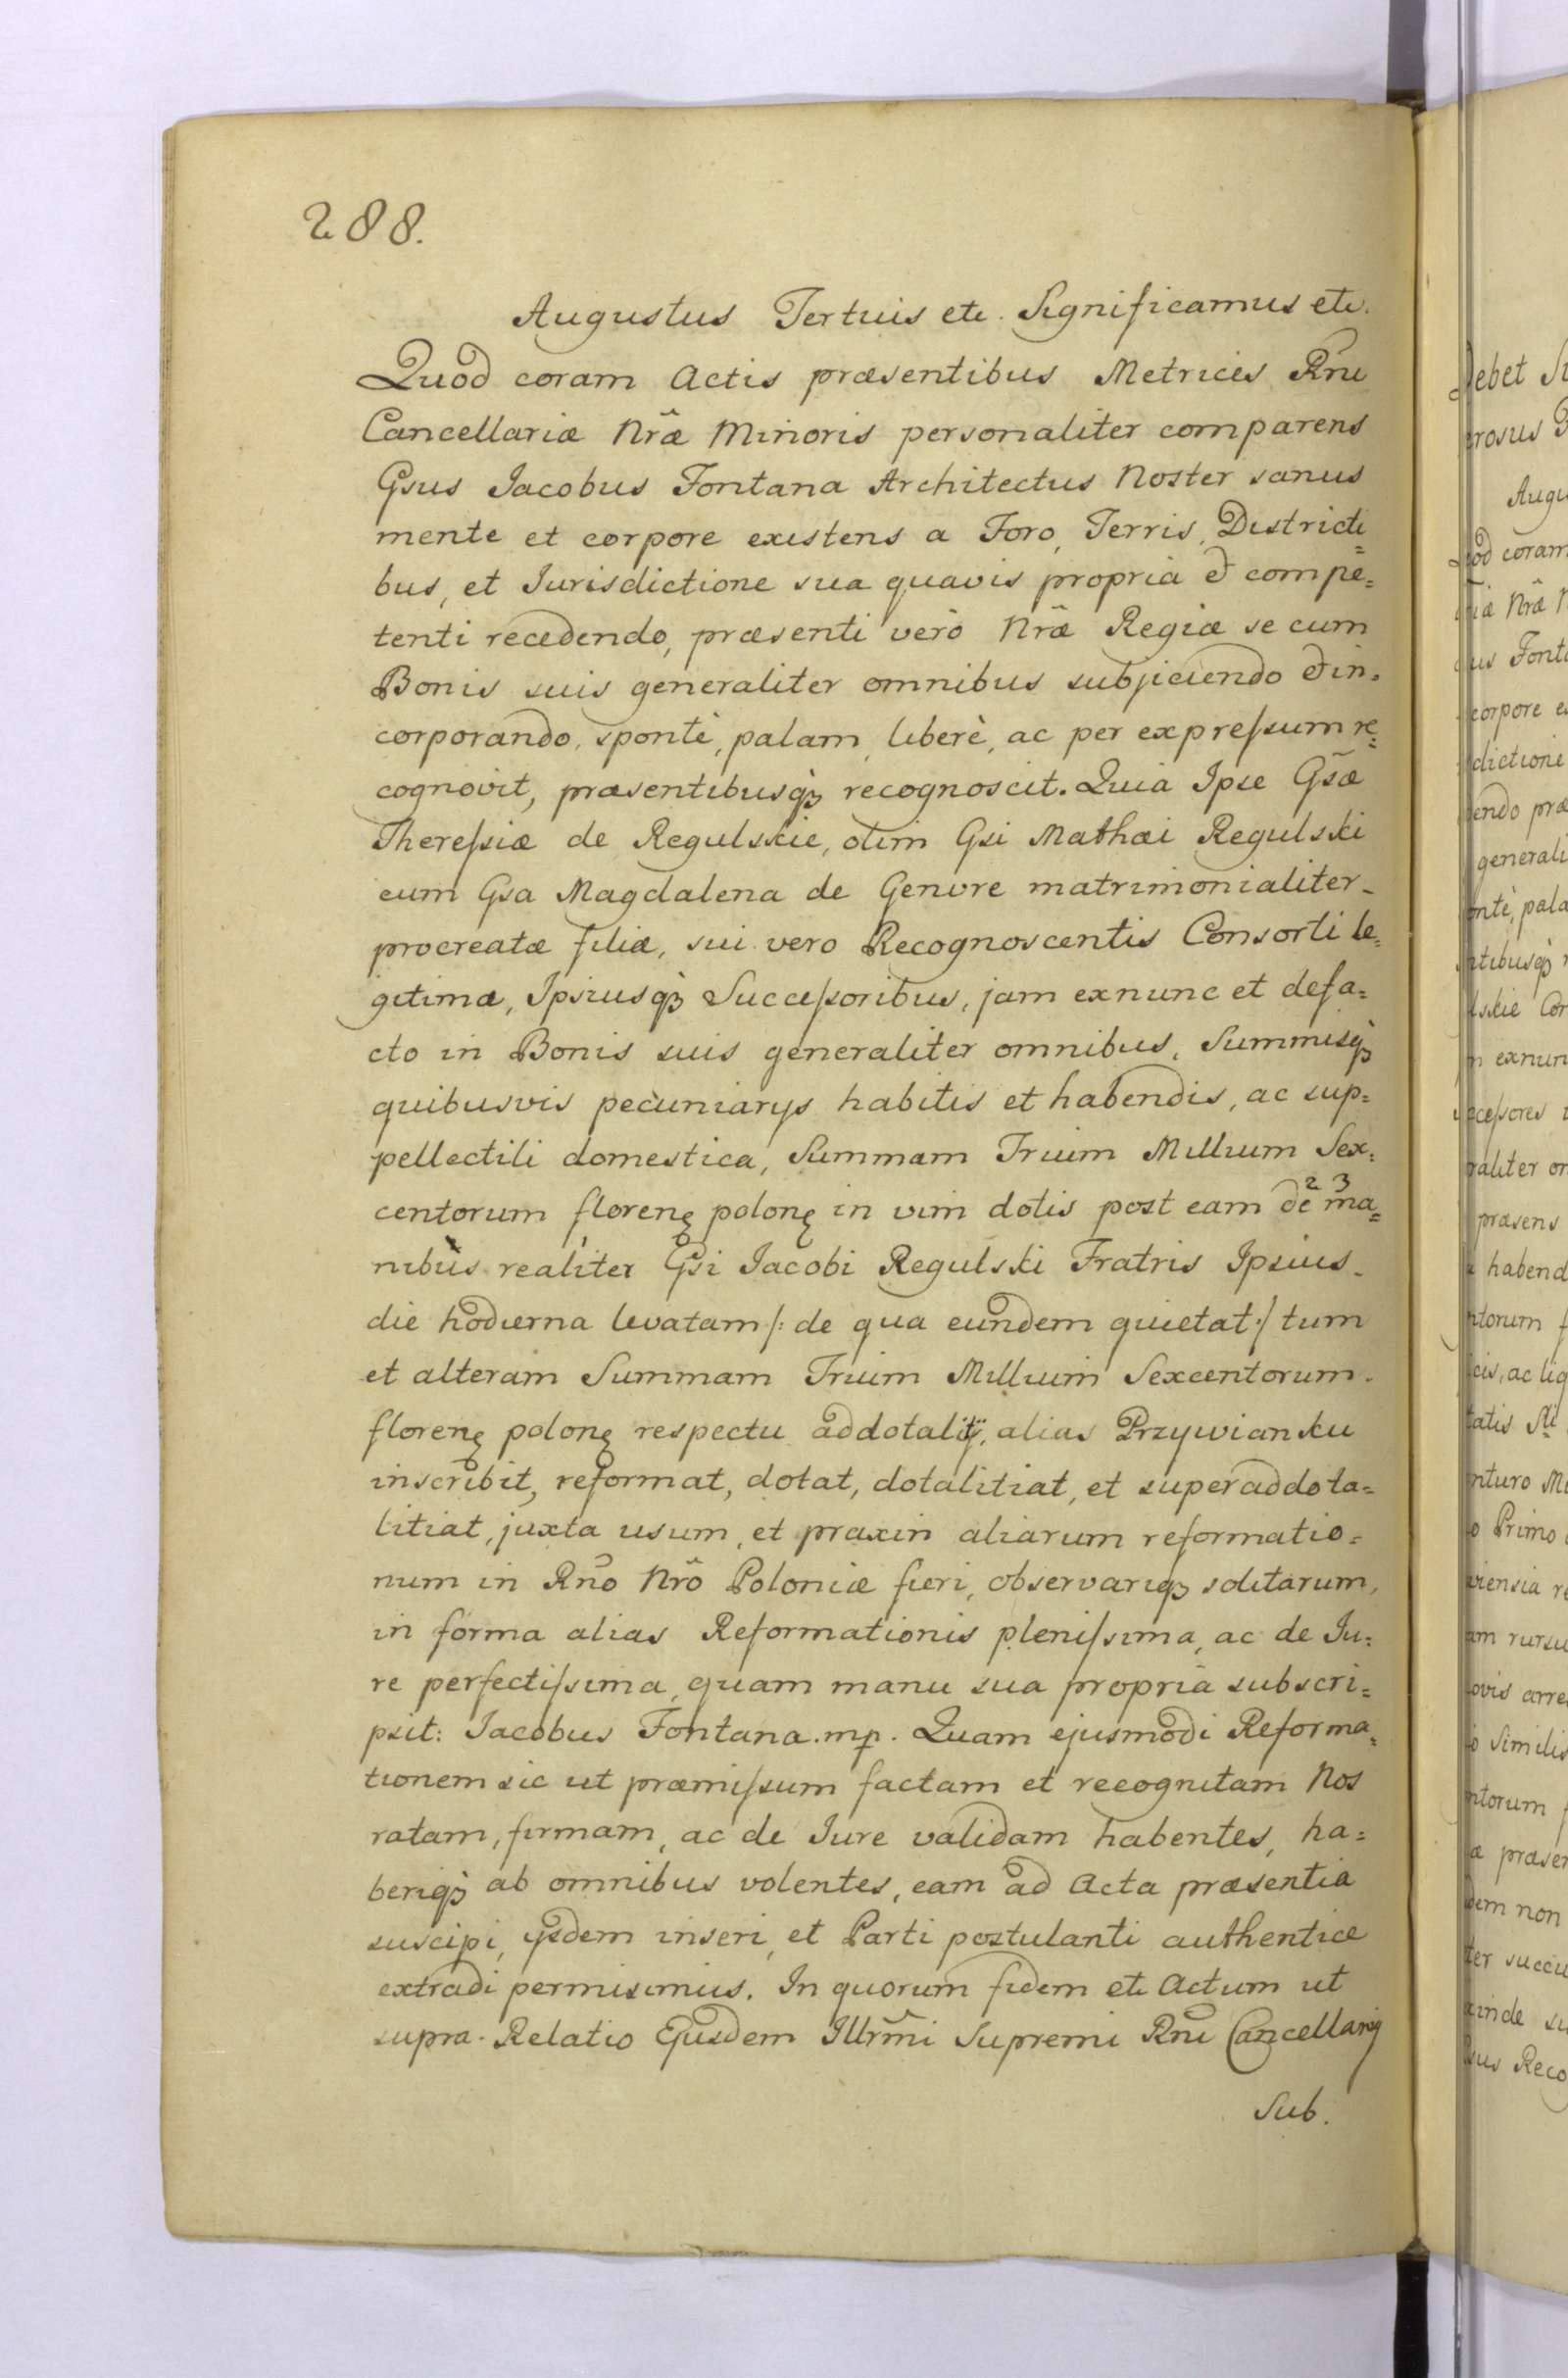 288.
Augustus Tertius etc. Significamus etc.
Quod coram Actis præsentibus Metrices Rñi
Cancellariæ Nræ̃ Minoris personaliter comparens
Gsus Jacobus Fontana Architectus Noster sanus
mente et corpore existens a Foro, Terris, Districti=
bus, et Jurisdictione sua quavis propria et compe=
tenti recedendo, præsenti verò Nræ̃ Regiæ se cum
Bonis suis generaliter omnibus subjiciendo et in=
corporando, spontè, palam, liberè, ac per expreſsum re=
cognovit, præsentibusqꝫ recognoscit. Quia Ipse Gsæ̃
Thereſsiæ de Regulskie, olim Gsi Mathæi Regulski
cum Gsa Magdalena de Genvre matrimonialiter-
procreatæ filiæ, sui vero Recognoscentis Consorti le=
gitimæ, Ipsiusqꝫ Succeſsoribus, jam exnunc et defa=
cto in Bonis suis generaliter omnibus, Summisqꝫ
quibusvis pecuniarys habitis et habendis, ac sup=
pellectili domestica, Summam Trium Millium Sex=
centorum florenę polonę in vim dotis post eam de 2 ma= 3
nibus realiter Gsi Jacobi Regulski Fratris Ipsius-
die hodierna levatam /: de qua eundem quietat :/ tum
et alteram Summam Trium Millium Sexcentorum.
florenę polonę respectu addotalitÿ, alias Przywianku
inscribit, reformat, dotat, dotalitiat, et superaddota=
litiat, juxta usum, et praxin aliarum reformatio=
num in Rño Nrõ Poloniæ fieri, observariqꝫ solitarum,
in forma alias Reformationis pleniſsima, ac de Ju=
re perfectiſsima, quam manu sua propria subscri=
psit: Jacobus Fontana. mp. Quam ejusmodi Reforma=
tionem sic ut præmiſsum factam et recognitam Nos
ratam, firmam, ac de Jure validam habentes, ha=
beriqꝫ ab omnibus volentes, eam ad Acta præsentia
suscipi, ysdem inseri, et Parti postulanti authentice
extradi permisimus. In quorum fidem etc Actum ut
supra. Relatio Ejusdem Illrm̃i Supremi Rñi Cancellarÿ
Sub.